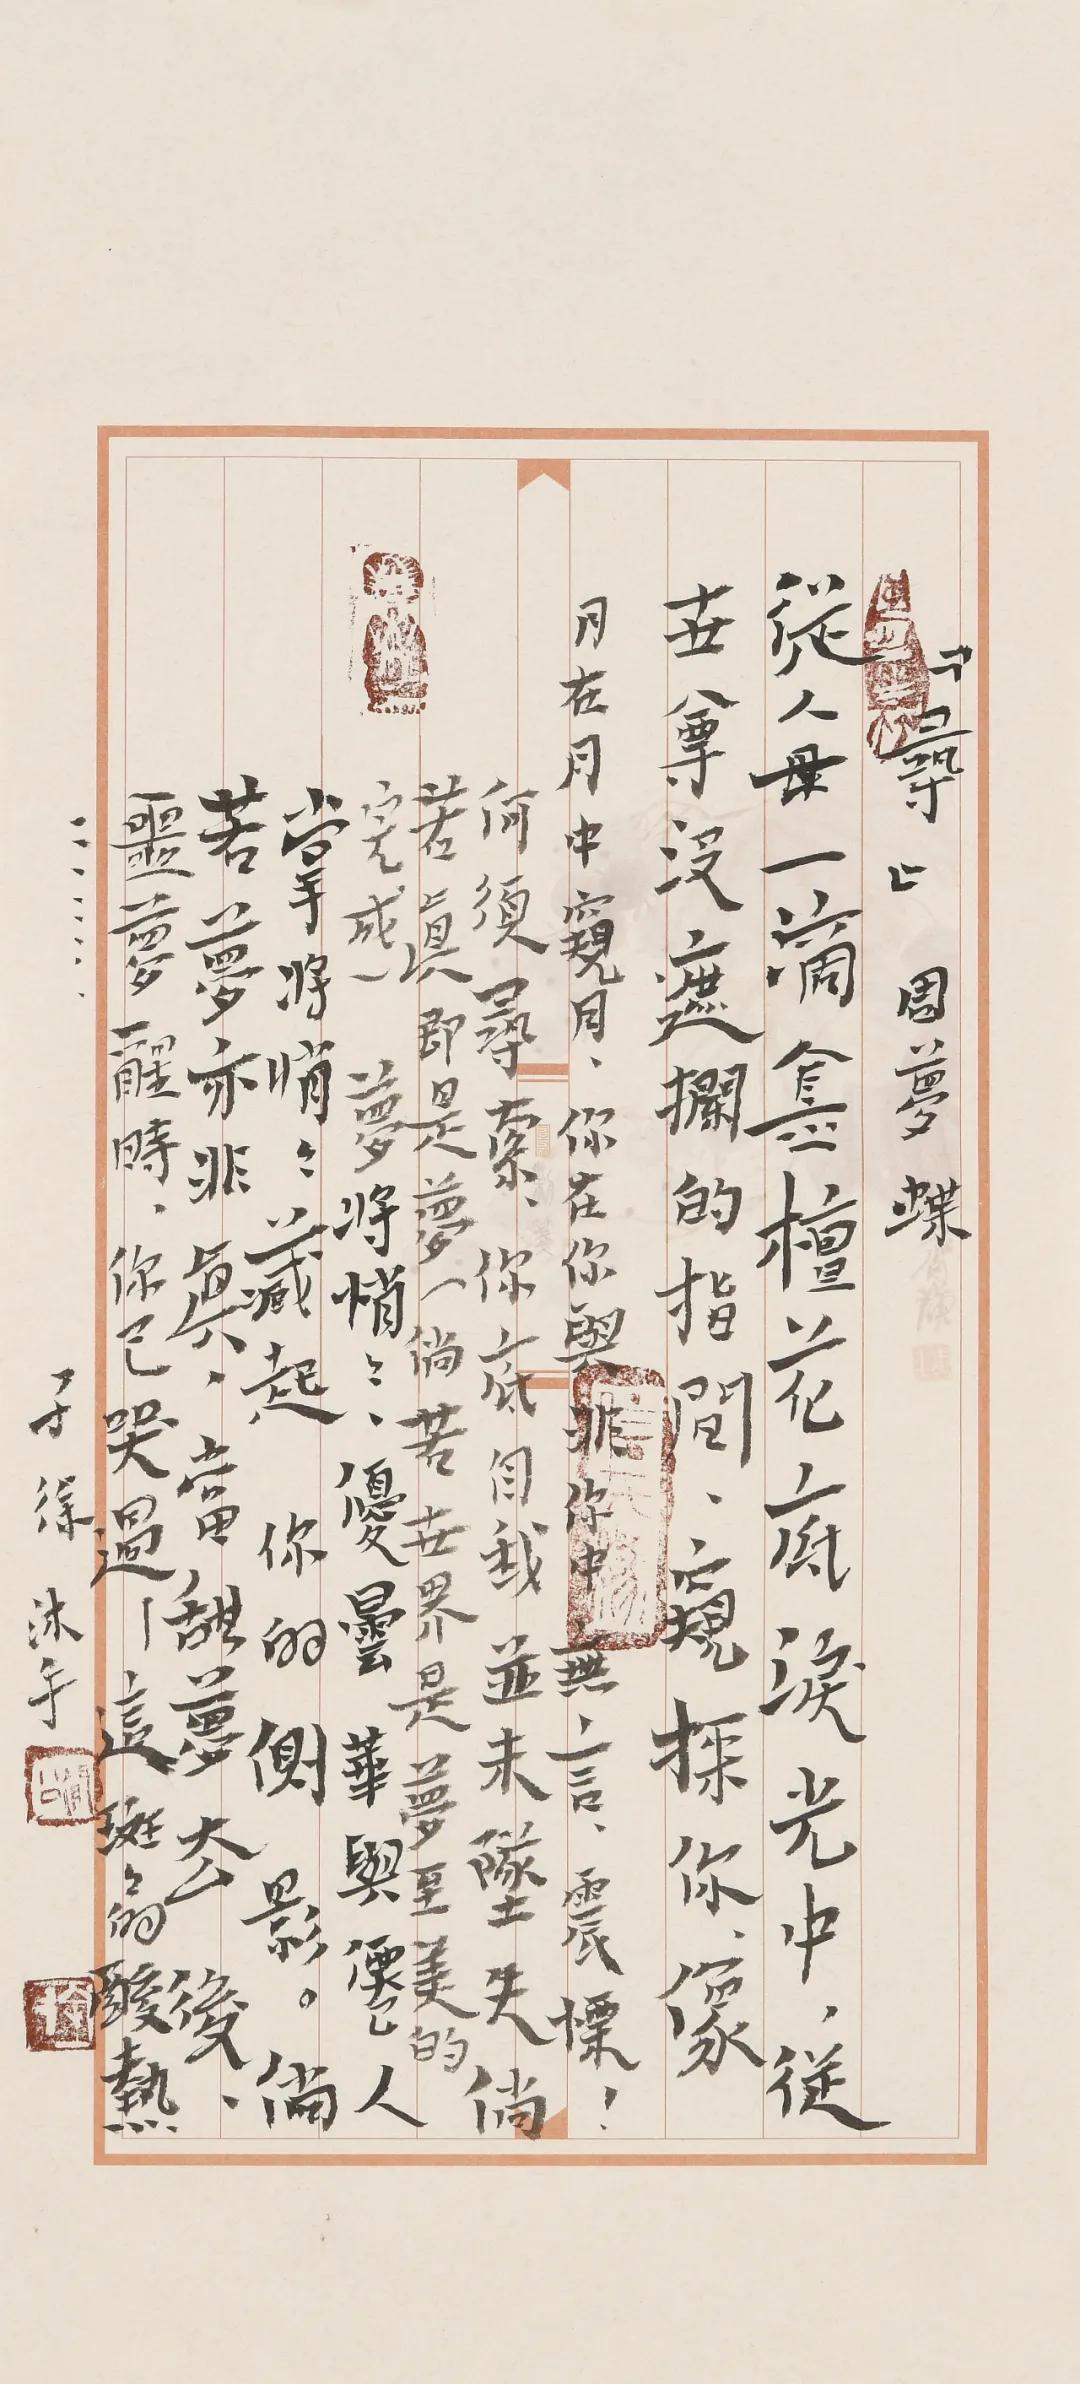 『尋』 周夢蝶
從每一滴金檀花底淚光中，從
世尊沒遮攔的指間、窺探你、像
月在月中窺月、你在你與非你中無言、震慄！
何須尋索、你底自我並未墜失倘
若眞即是夢—倘若世界是夢至美的
完成— 夢將悄〻、優曇華與僊人
掌將悄〻藏起 你的側影。倘
若夢亦非眞、當甜夢去後、
噩夢醒時、你已哭過—這斑〻的酸熱
、、、、、、
子徐 沐手